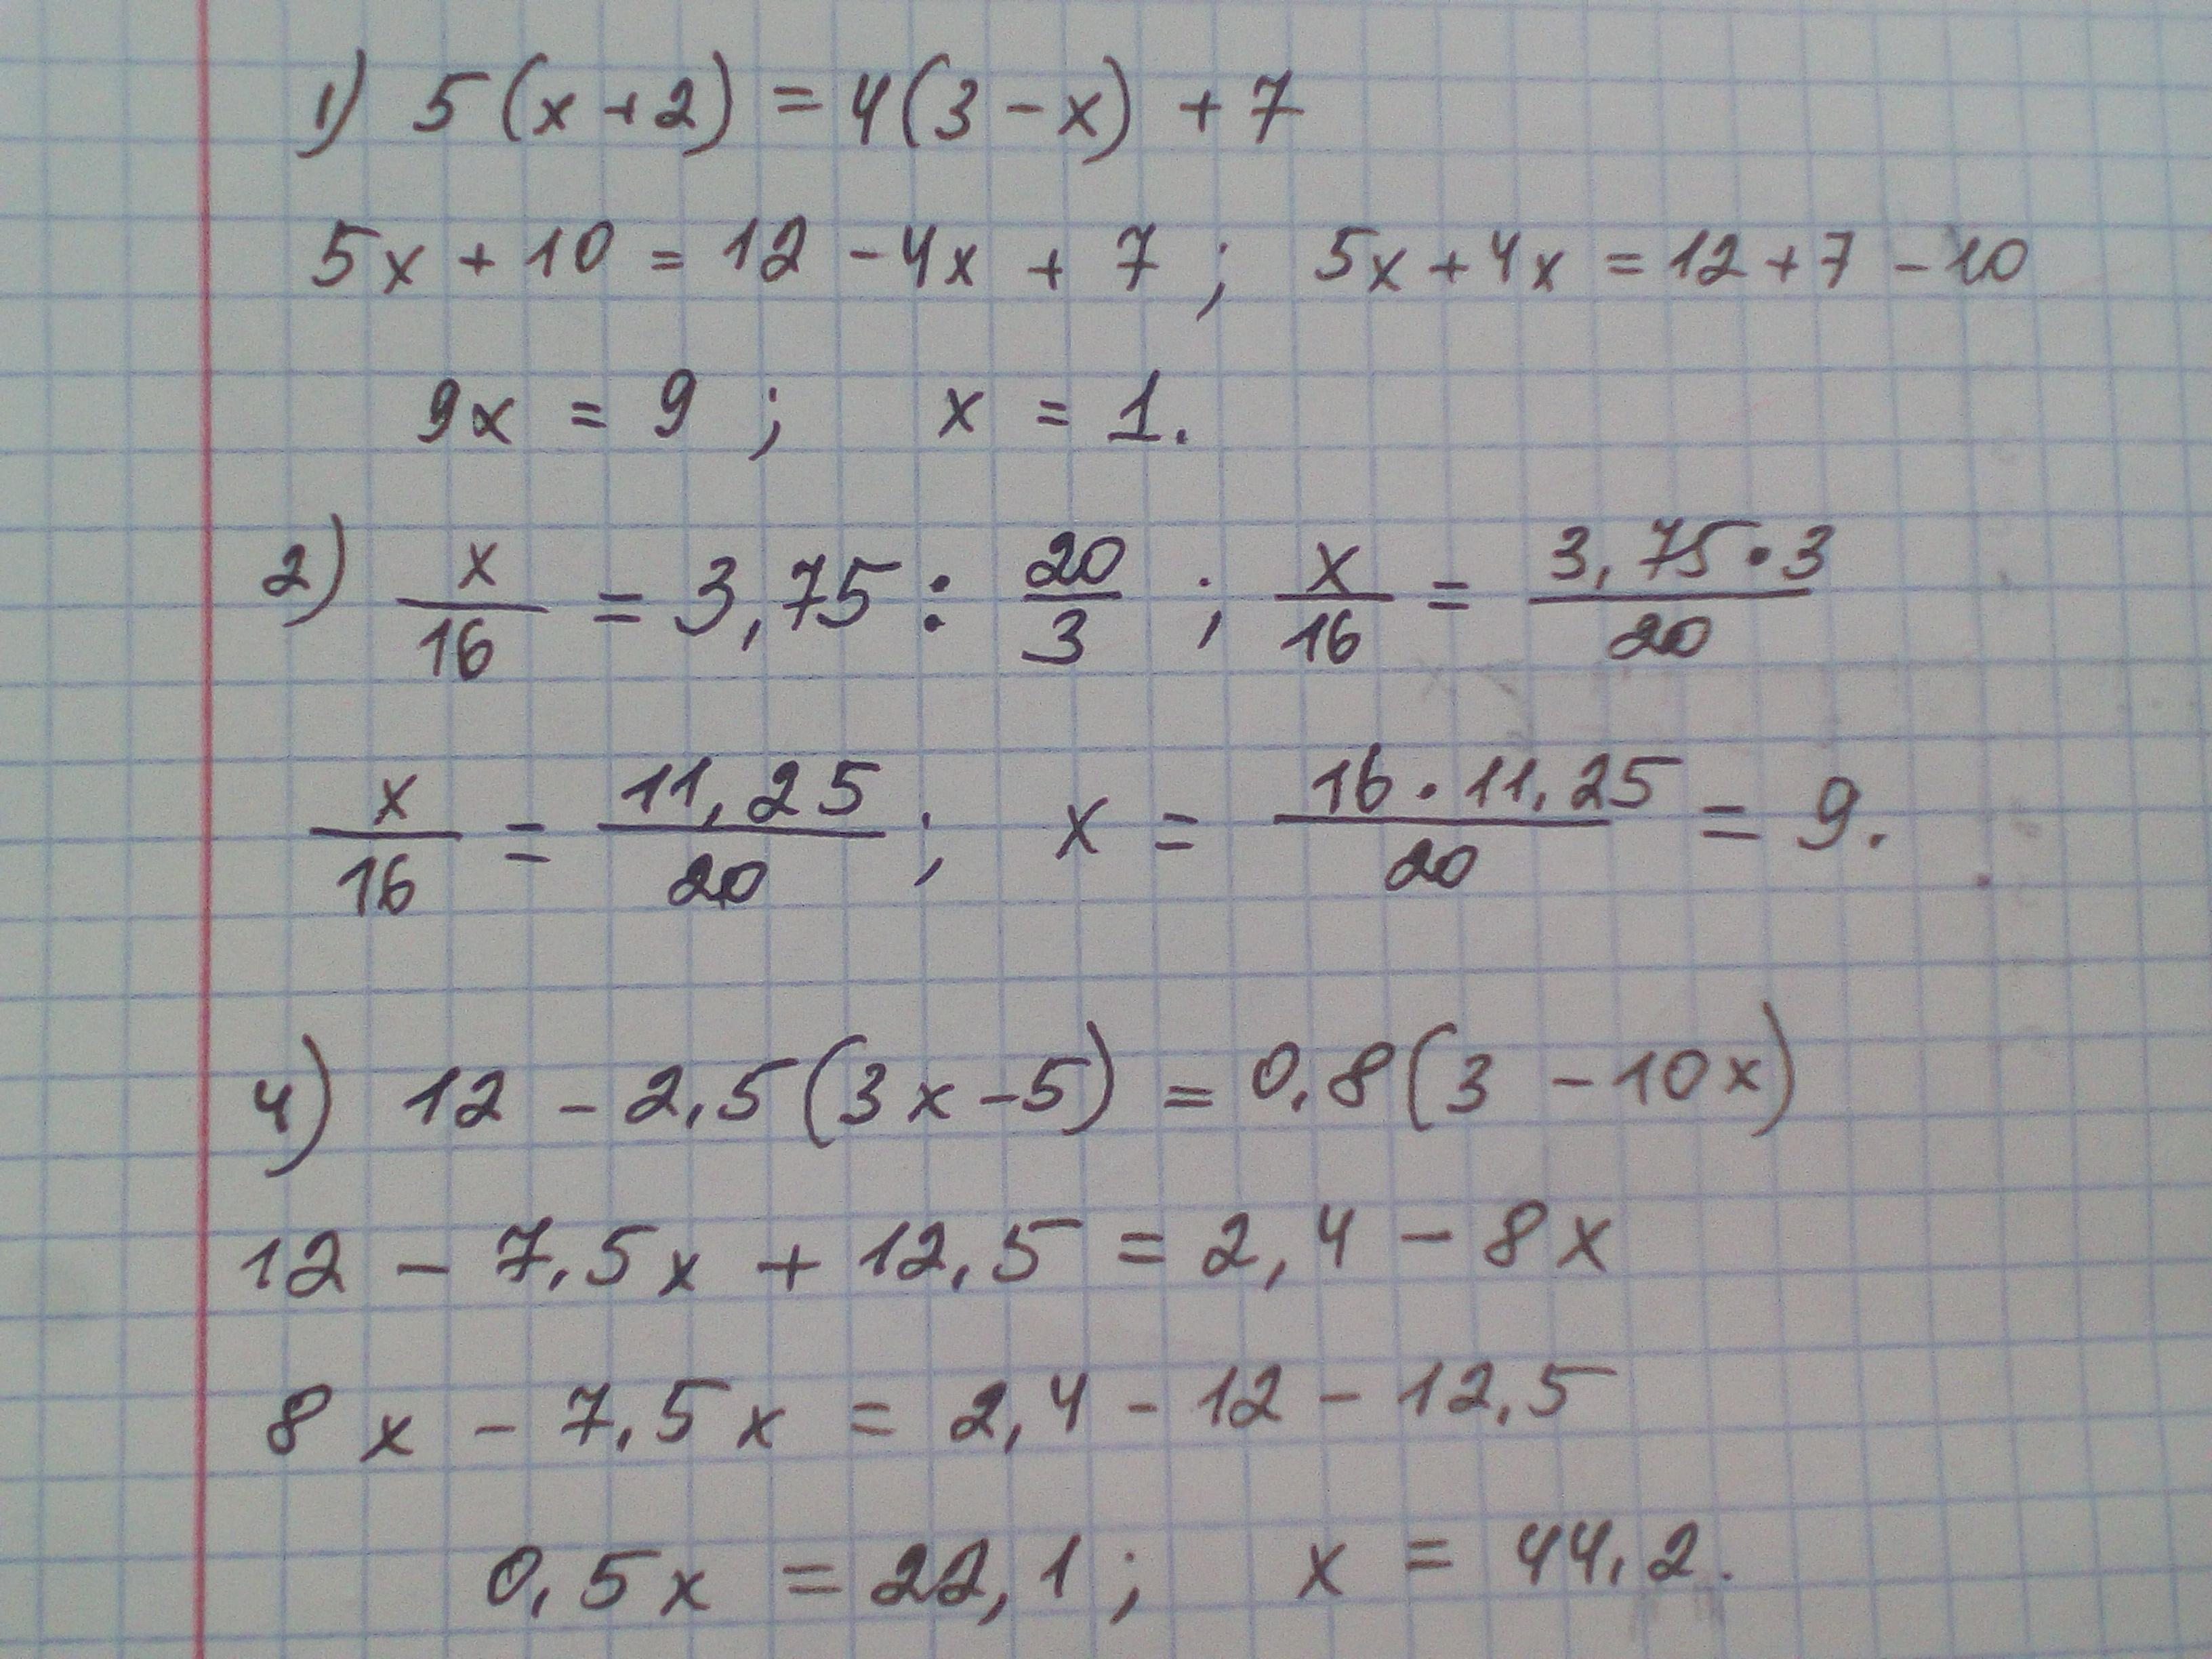 1) 5(x+2) = 4(3-x) + 7
5x + 10 = 12 - 4x + 7 ; 5x + 4x = 12 + 7 - 10
9x = 9 ; x = 1.
2) x/16 = 3,75 : 20/3 ; x/16 = 3,75·3/20
x/16 = 11,25/20 ; x = 16·11,25/20 = 9.
4) 12 - 2,5(3x-5) = 0,8(3 - 10x)
12 - 7,5x + 12,5 = 2,4 - 8x
8x - 7,5x = 2,4 - 12 - 12,5
0,5x = 22,1 ; x = 44,2.